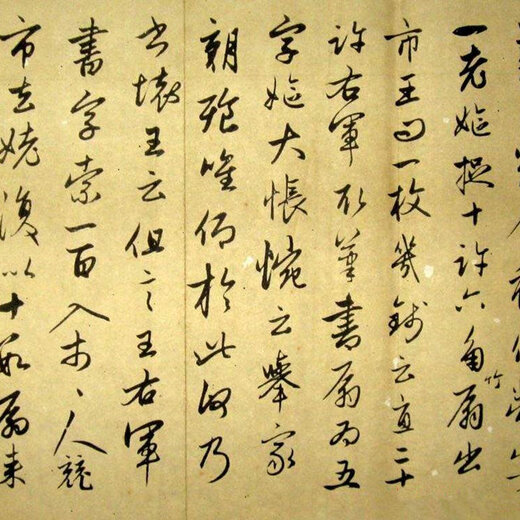 一老嫗捉十許六角竹扇出
市王問一枚幾錢云直二十
許右軍取筆書扇為五
字嫗大悵惋云舉家
朝飡唯仰於此何乃
書壞王云但言王右軍
書字索一百入市〻人競
市去姥復以十數扇來